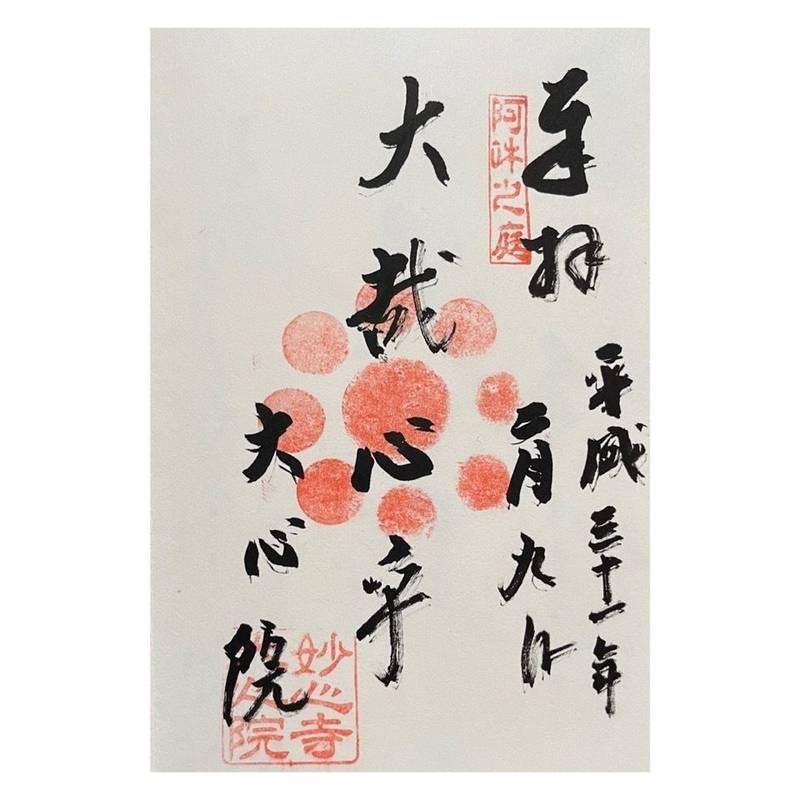 奉拝
阿吽之庭
平成三十一年
二月九日
大哉心乎
大心院
妙心寺
大心院